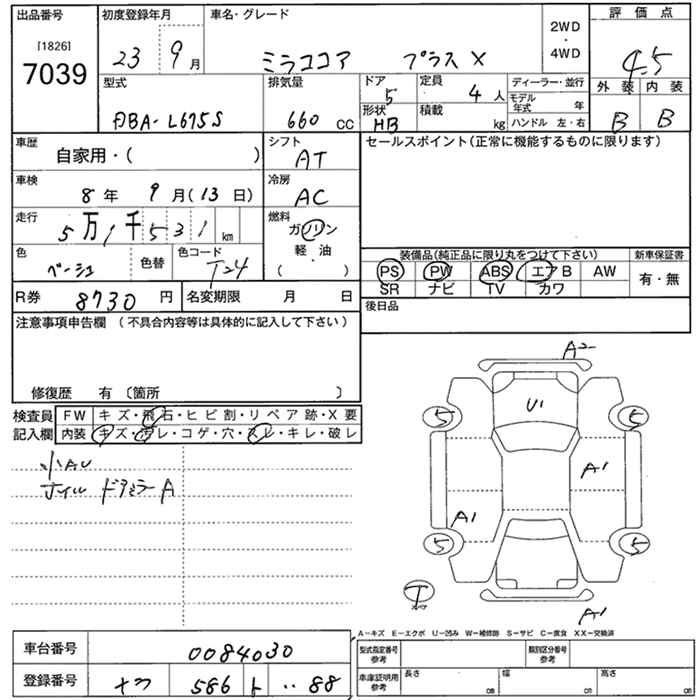 出品番号 初度登録年月 車名・グレード 評価点
[1826] 7039 23 9月 ミラココア プラス X 2WD・4WD 4.5
型式 排気量 ドア 定員 ディーラー・並行 外装 内装
DBA-L675S 660 CC 5 4人 モデル年式 年 B B
形状 HB 積載 kg ハンドル 左・右
車歴 シフト セールスポイント(正常に機能するものに限ります)
自家用・( ) AT
車検 冷房
8年 9月(13日) AC
走行 燃料
5万1千531 km ガソリン
軽・油
( )
色 色替 色コード 装備品(純正品に限り丸をつけて下さい) 新車保証書
ベージュ T24 PS PW ABS エアB AW 有・無
SR ナビ TV カワ
R券 8730円 名変期限 月 日 後日品
注意事項申告欄 (不具合内容等は具体的に記入して下さい)
修復歴 有 〔箇所 〕
検査員 FW キズ・飛石・ヒビ割・リペア跡・X要
記入欄 内装 キズ・汚レ・コゲ・穴・スレ・キレ・破レ
小AU
ホイル ドアミラーA
A2
U1
5 5
A1
A1
5 5
T
A1
A-キズ E-エクボ U-凹み W-補修跡 S-サビ C-腐食 XX-交換済
車台番号 0084030 型式指定番号 参考 類別区分番号 参考
登録番号 586 ・・88 車庫証明用 参考 長さ cm 幅 cm 高さ cm